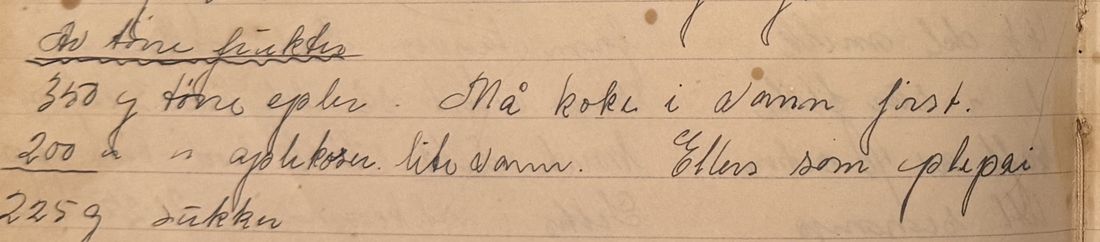 Av törre frukter
350 g törre epler. Må koke i vann först.
200 " " aplekoser. lite vann. Ellers som eplepai
225 g sukker